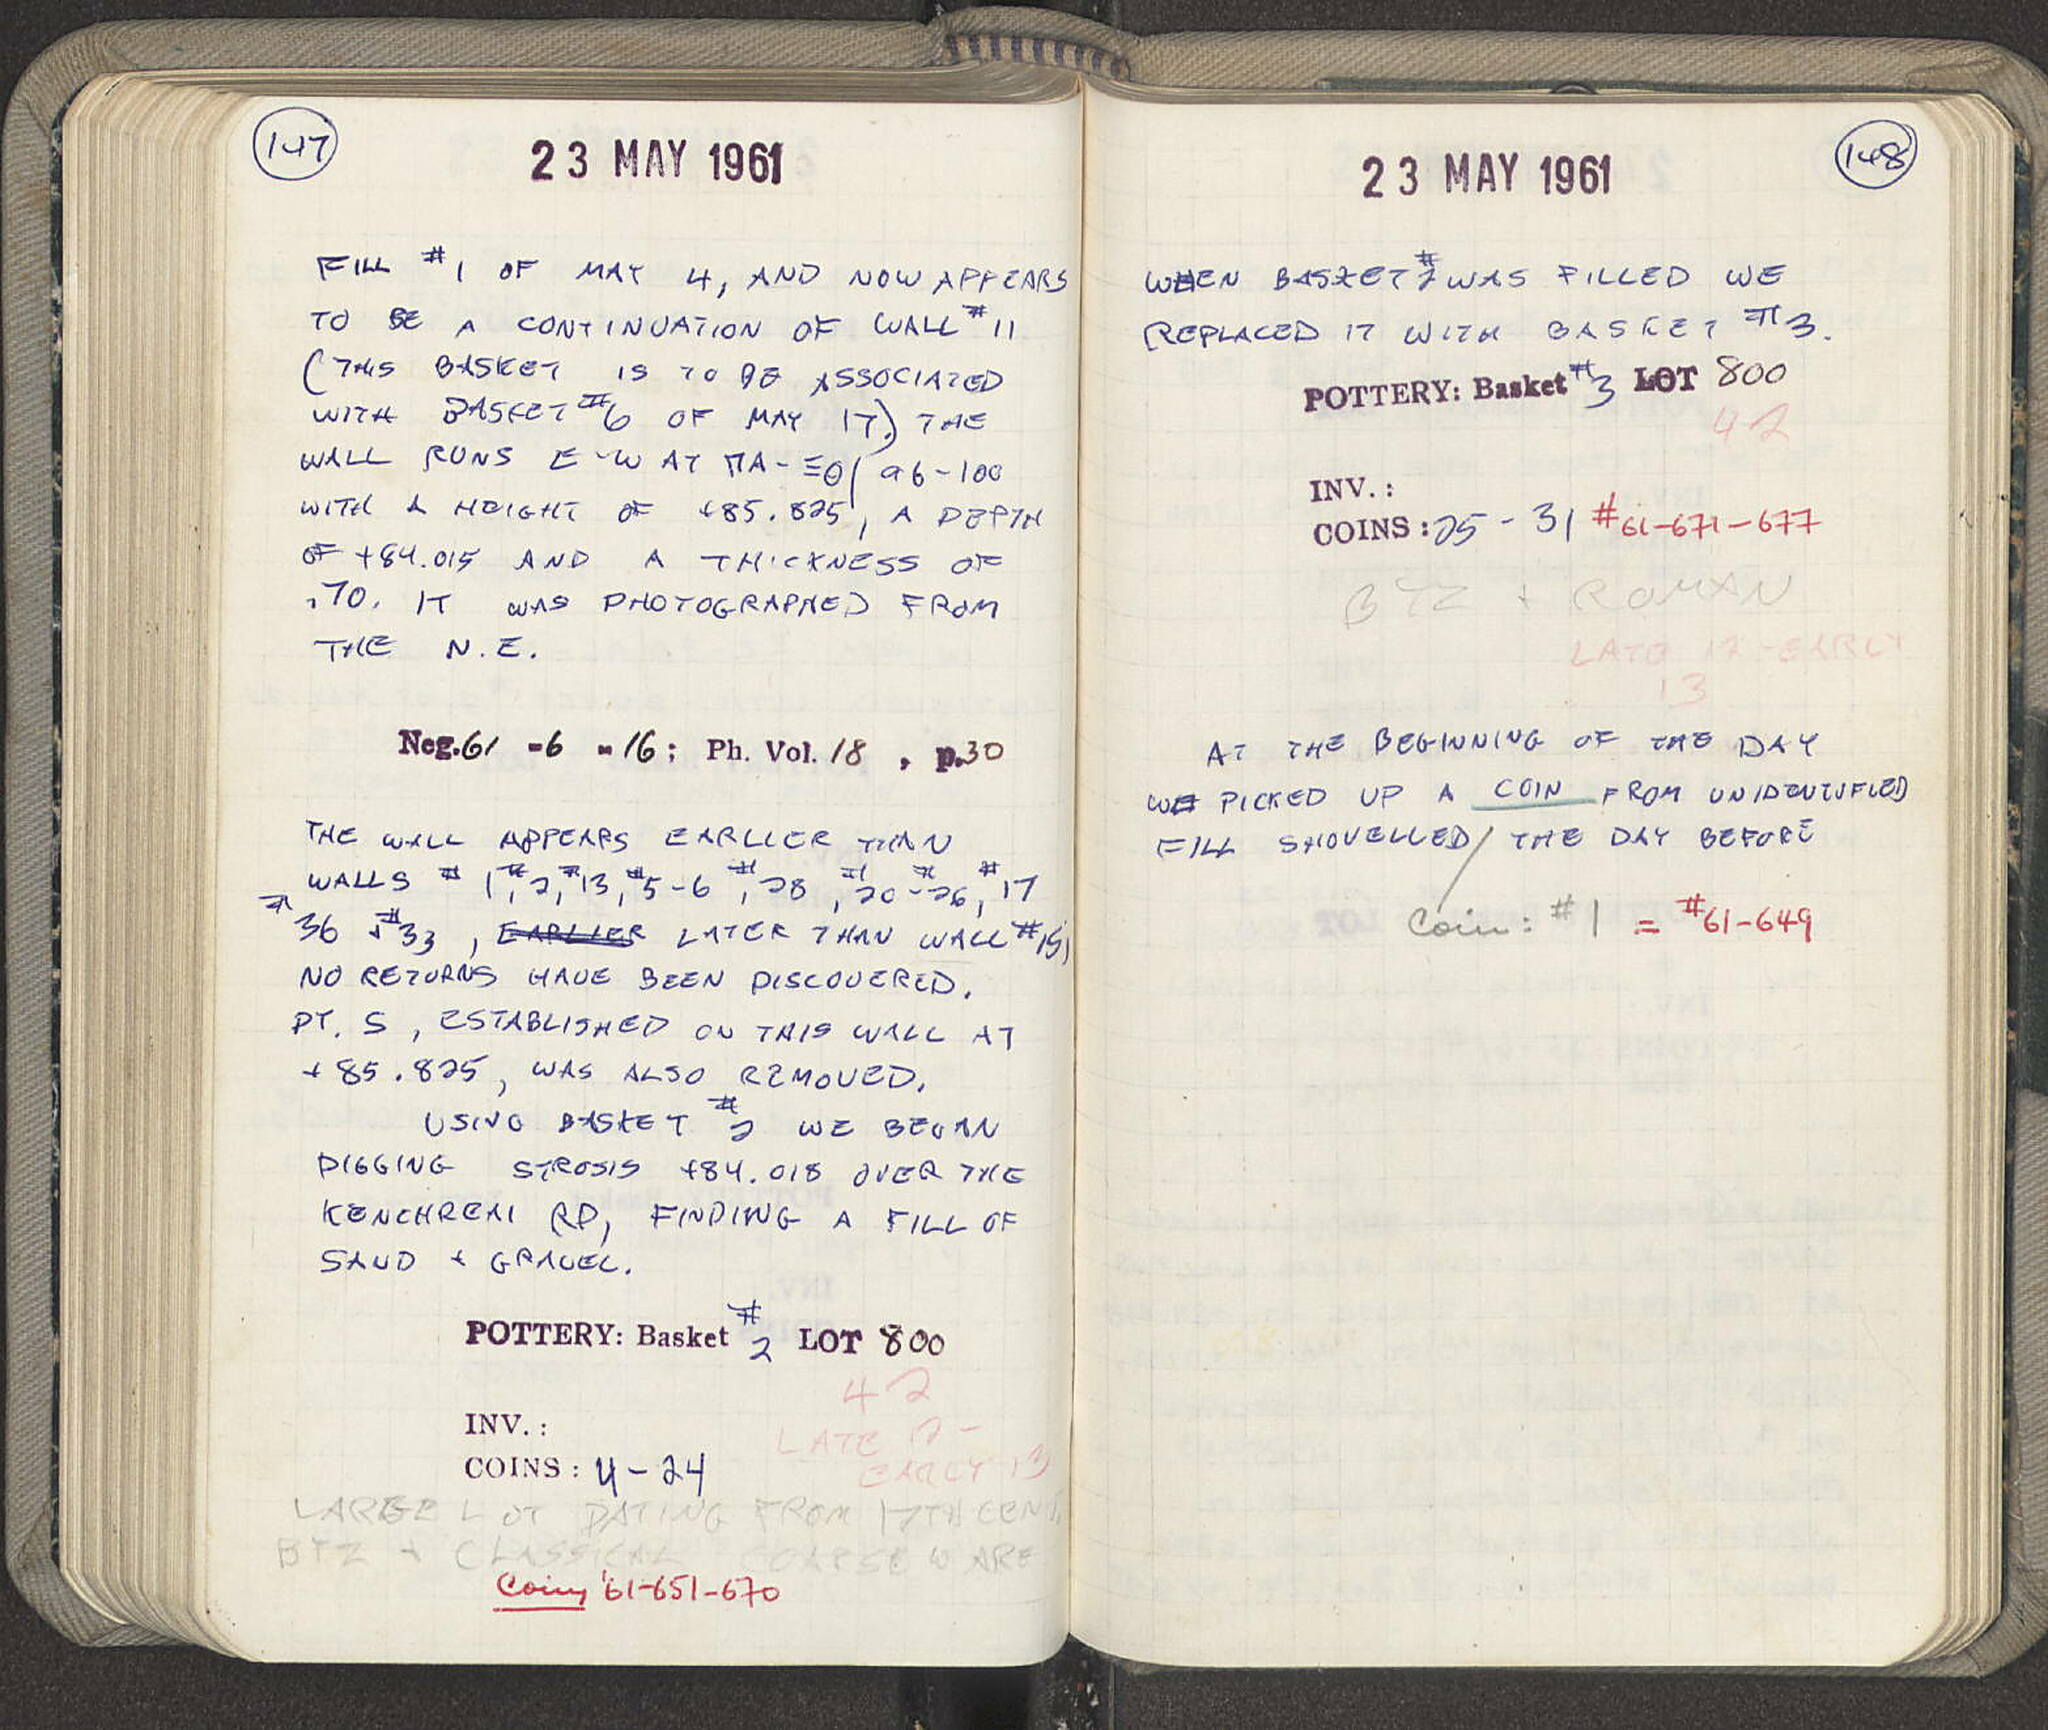 147
23 MAY 1961
FILL #1 OF MAY 4, AND NOW APPEARS
TO BE A CONTINUATION OF WALL #11
(THIS BASKET IS TO BE ASSOCIATED
WITH BASKET #6 OF MAY 17.) THE
WALL RUNS E-W AT ΠA-ΞΘ/96-100
WITH A HEIGHT OF +85.825, A DEPTH
OF +84.015 AND A THICKNESS OF
.70. IT WAS PHOTOGRAPHED FROM
THE N.E.
Neg. 61 - 6 - 16; Ph. Vol. 18, p. 30
THE WALL APPEARS EARLIER THAN
WALLS # 1, #2, #13, #5-6, #28, #20-#26, #17
#36 + #33, EARLIER LATER THAN WALL #15,
NO RETURNS HAVE BEEN DISCOVERED.
PT. S, ESTABLISHED ON THIS WALL AT
+85.825, WAS ALSO REMOVED.
USING BASKET #2 WE BEGAN
DIGGING STROSIS +84.018 OVER THE
KENCHREAI RD, FINDING A FILL OF
SAND + GRAVEL.
POTTERY: Basket #2 LOT 800
42
INV.:
LATE 12 -
EARLY 13
COINS: 4-24
LARGE LOT DATING FROM 12TH CENT.
BYZ + CLASSICAL COARSE WARE
Coins '61-651-670
148
23 MAY 1961
WHEN BASKET #2 WAS FILLED WE
REPLACED IT WITH BASKET #3.
POTTERY: Basket #3 LOT 800
42
INV.:
COINS: 25-31 #61-671-677
BYZ + ROMAN
LATE 12 - EARLY
13
AT THE BEGINNING OF THE DAY
WE PICKED UP A COIN FROM UNIDENTIFIED
FILL SHOVELLED / THE DAY BEFORE
Coin: #1 = #61-649